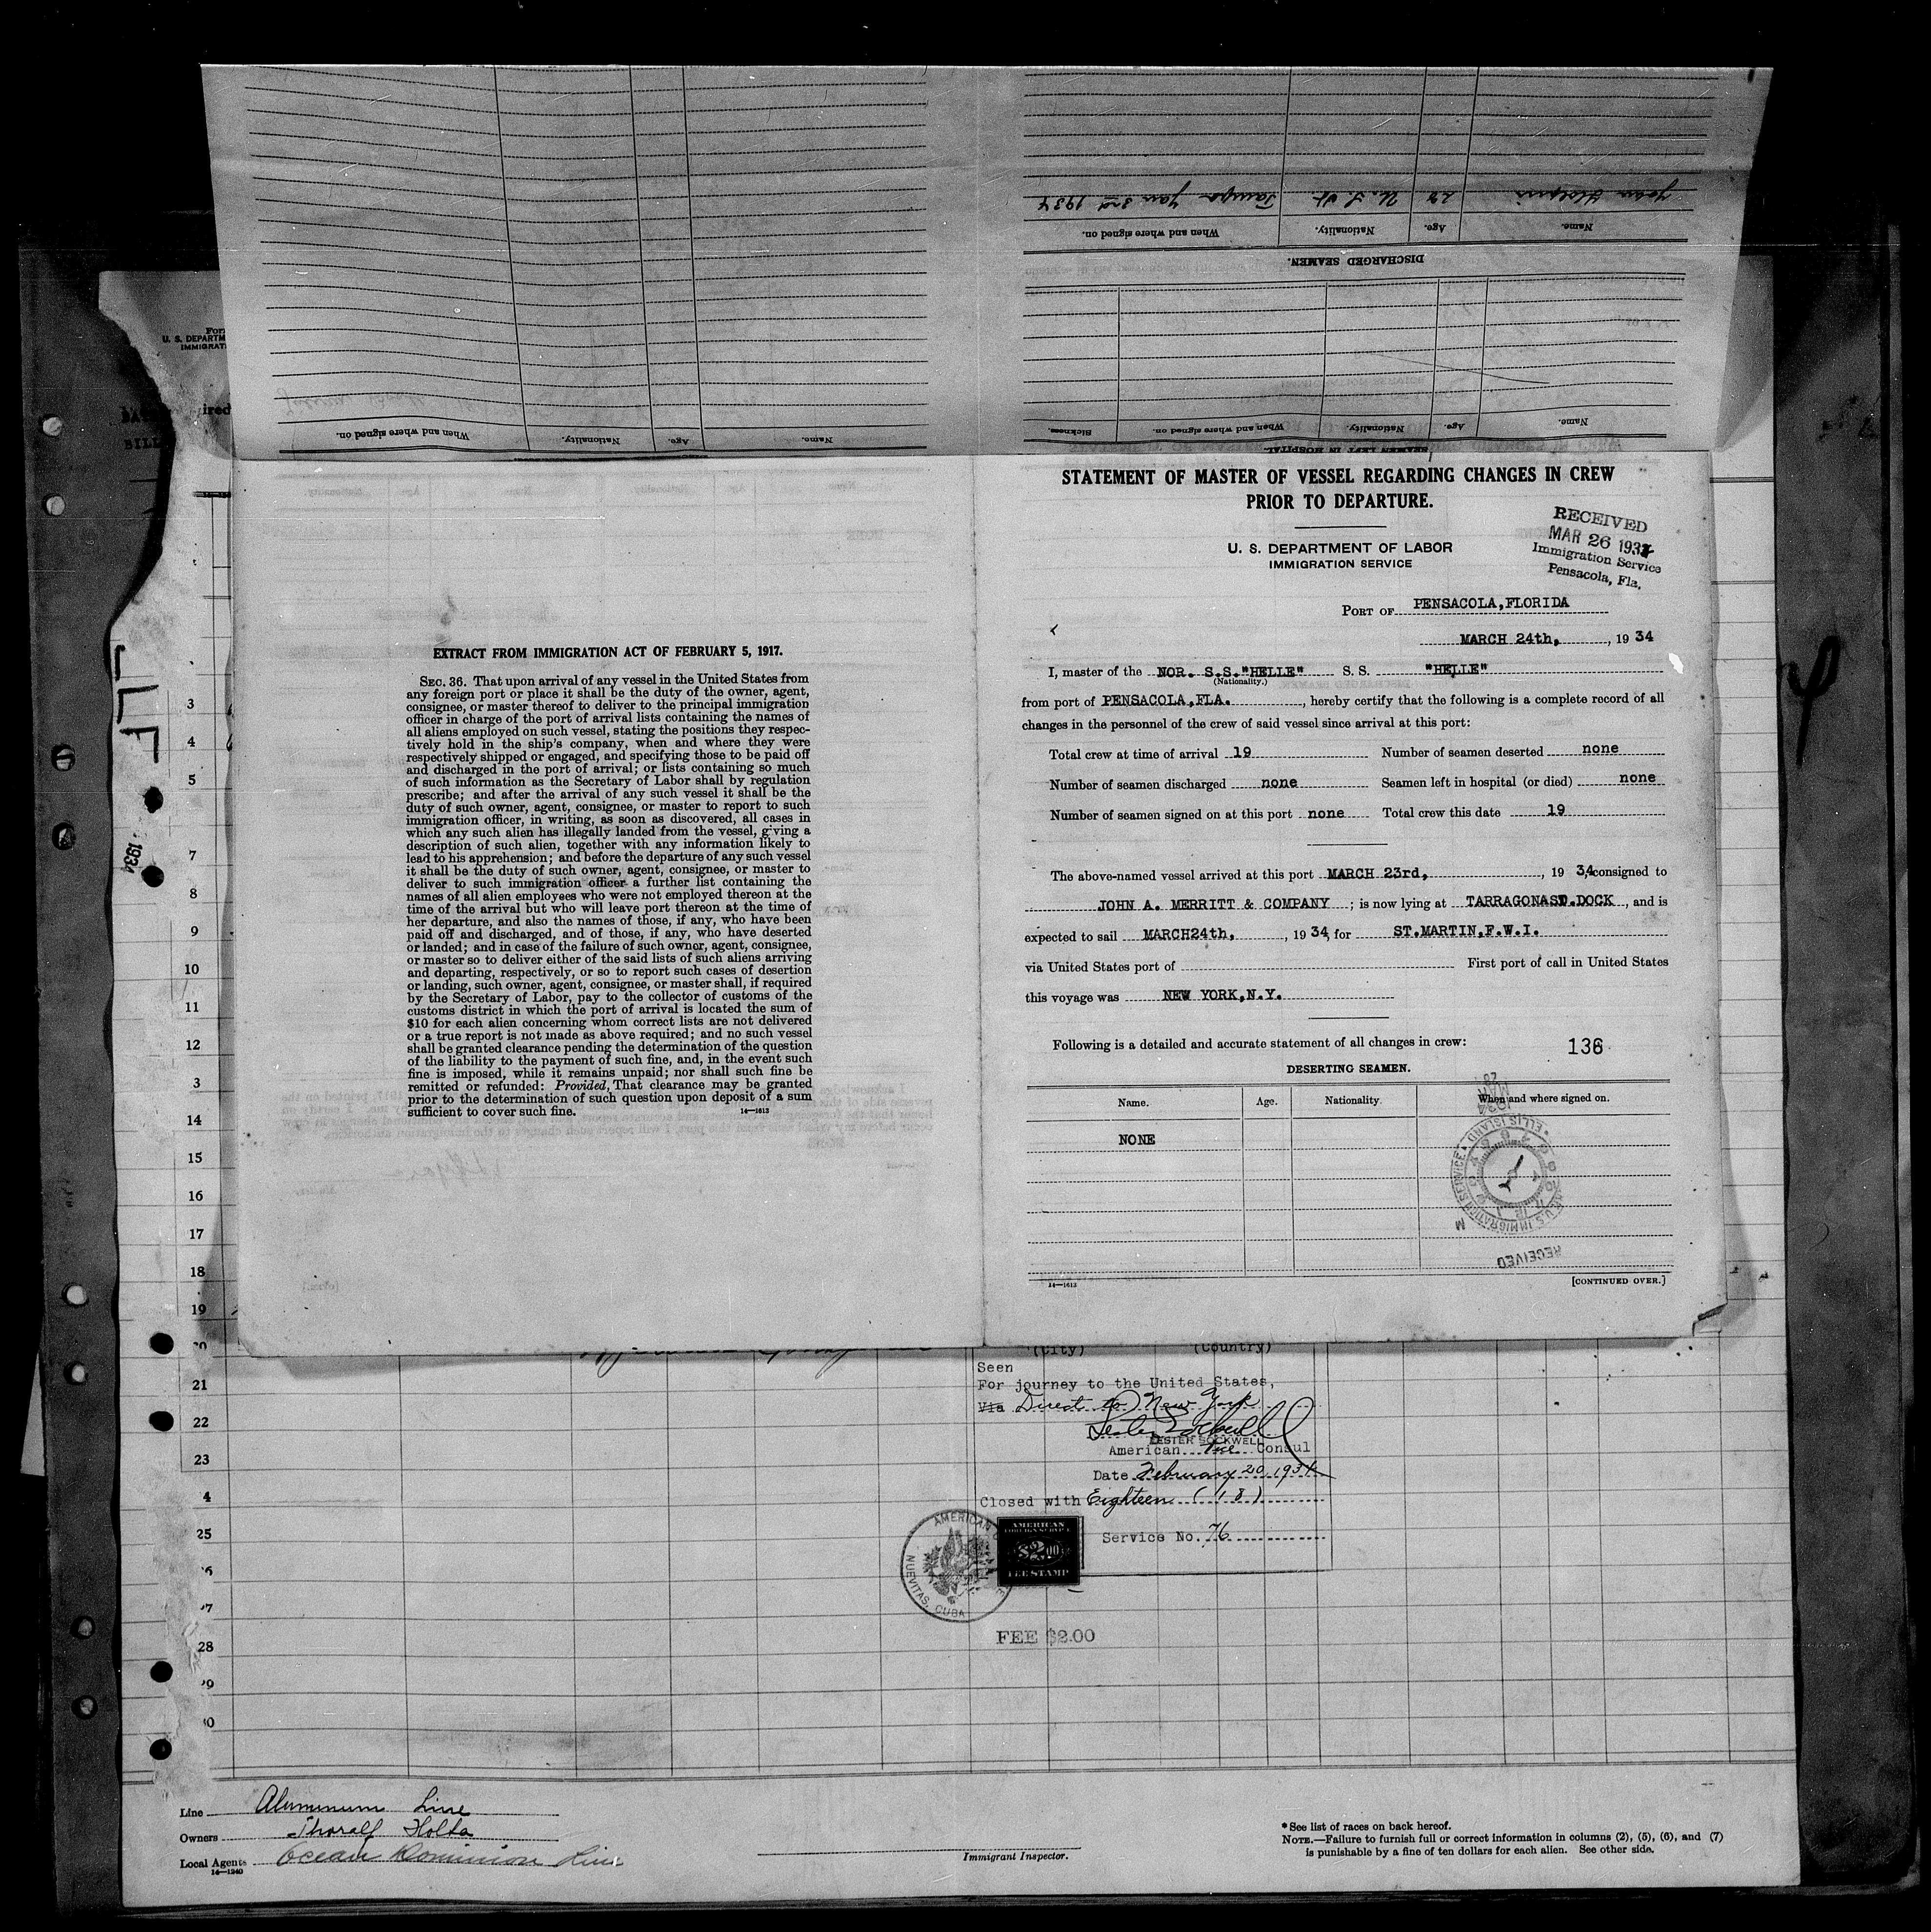 John
28
Tampa Jan 3rd 1934
Name.
Age.
Nationality.
When and where signed on.
DISCHARGED SEAMEN.
Name.
Age.
Nationality.
When and where signed on.
Name.
Age.
Nationality.
When and where signed on.
Sickness.
SEAMEN LEFT IN HOSPITAL
U. S. DEPARTM
IMMIGRAT
ired
BILL
1934
EXTRACT FROM IMMIGRATION ACT OF FEBRUARY 5, 1917.
SEC. 36. That upon arrival of any vessel in the United States from
any foreign port or place it shall be the duty of the owner, agent,
consignee, or master thereof to deliver to the principal immigration
officer in charge of the port of arrival lists containing the names of
all aliens employed on such vessel, stating the positions they respec-
tively hold in the ship's company, when and where they were
respectively shipped or engaged, and specifying those to be paid off
and discharged in the port of arrival; or lists containing so much
of such information as the Secretary of Labor shall by regulation
prescribe; and after the arrival of any such vessel it shall be the
duty of such owner, agent, consignee, or master to report to such
immigration officer, in writing, as soon as discovered, all cases in
which any such alien has illegally landed from the vessel, giving a
description of such alien, together with any information likely to
lead to his apprehension; and before the departure of any such vessel
it shall be the duty of such owner, agent, consignee, or master to
deliver to such immigration officer a further list containing the
names of all alien employees who were not employed thereon at the
time of the arrival but who will leave port thereon at the time of
her departure, and also the names of those, if any, who have been
paid off and discharged, and of those, if any, who have deserted
or landed; and in case of the failure of such owner, agent, consignee,
or master so to deliver either of the said lists of such aliens arriving
and departing, respectively, or so to report such cases of desertion
or landing, such owner, agent, consignee, or master shall, if required
by the Secretary of Labor, pay to the collector of customs of the
customs district in which the port of arrival is located the sum of
$10 for each alien concerning whom correct lists are not delivered
or a true report is not made as above required; and no such vessel
shall be granted clearance pending the determination of the question
of the liability to the payment of such fine, and, in the event such
fine is imposed, while it remains unpaid; nor shall such fine be
remitted or refunded: Provided, That clearance may be granted
prior to the determination of such question upon deposit of a sum
sufficient to cover such fine. 14—1613
STATEMENT OF MASTER OF VESSEL REGARDING CHANGES IN CREW
PRIOR TO DEPARTURE.
RECEIVED
MAR 26 1934
Immigration Service
Pensacola, Fla.
U. S. DEPARTMENT OF LABOR
IMMIGRATION SERVICE
PORT OF PENSACOLA,FLORIDA
MARCH 24th, , 19 34
I, master of the NOR. S.S."HELLE" S. S. "HELLE"
(Nationality.)
from port of PENSACOLA,FLA. , hereby certify that the following is a complete record of all
changes in the personnel of the crew of said vessel since arrival at this port:
Total crew at time of arrival 19 Number of seamen deserted none
Number of seamen discharged none Seamen left in hospital (or died) none
Number of seamen signed on at this port none Total crew this date 19
The above-named vessel arrived at this port MARCH 23rd, , 19 34, consigned to
JOHN A. MERRITT & COMPANY ; is now lying at TARRAGONAST.DOCK , and is
expected to sail MARCH24th, , 19 34, for ST.MARTIN,F.W.I.
via United States port of First port of call in United States
this voyage was NEW YORK,N.Y.
Following is a detailed and accurate statement of all changes in crew: 136
DESERTING SEAMEN.
Name. Age. Nationality. When and where signed on.
NONE
MAR 28 1934
U.S. IMMIGRATION SERVICE
ELLIS ISLAND
RECEIVED
14—1613 [CONTINUED OVER.]
3
4
5
7
8
9
10
11
12
3
14
15
16
17
18
19
20
21
22
23
4
25
6
7
28
9
0
(City) (Country)
Seen
For journey to the United States,
Via Direct to New York
LESTER SCKWELL
American Vice Consul
Date February 20, 1934
Closed with Eighteen (18)
Service No. 76
AMERICAN
NUEVITAS, CUBA
AMERICAN
FOREIGN SERVICE
$2.00
FEE STAMP
FEE $2.00
Line Aluminum Line
Owners Thoralf Holta
Local Agents Ocean Dominion Line
14—1240
Immigrant Inspector.
* See list of races on back hereof.
NOTE.—Failure to furnish full or correct information in columns (2), (5), (6), and (7)
is punishable by a fine of ten dollars for each alien. See other side.